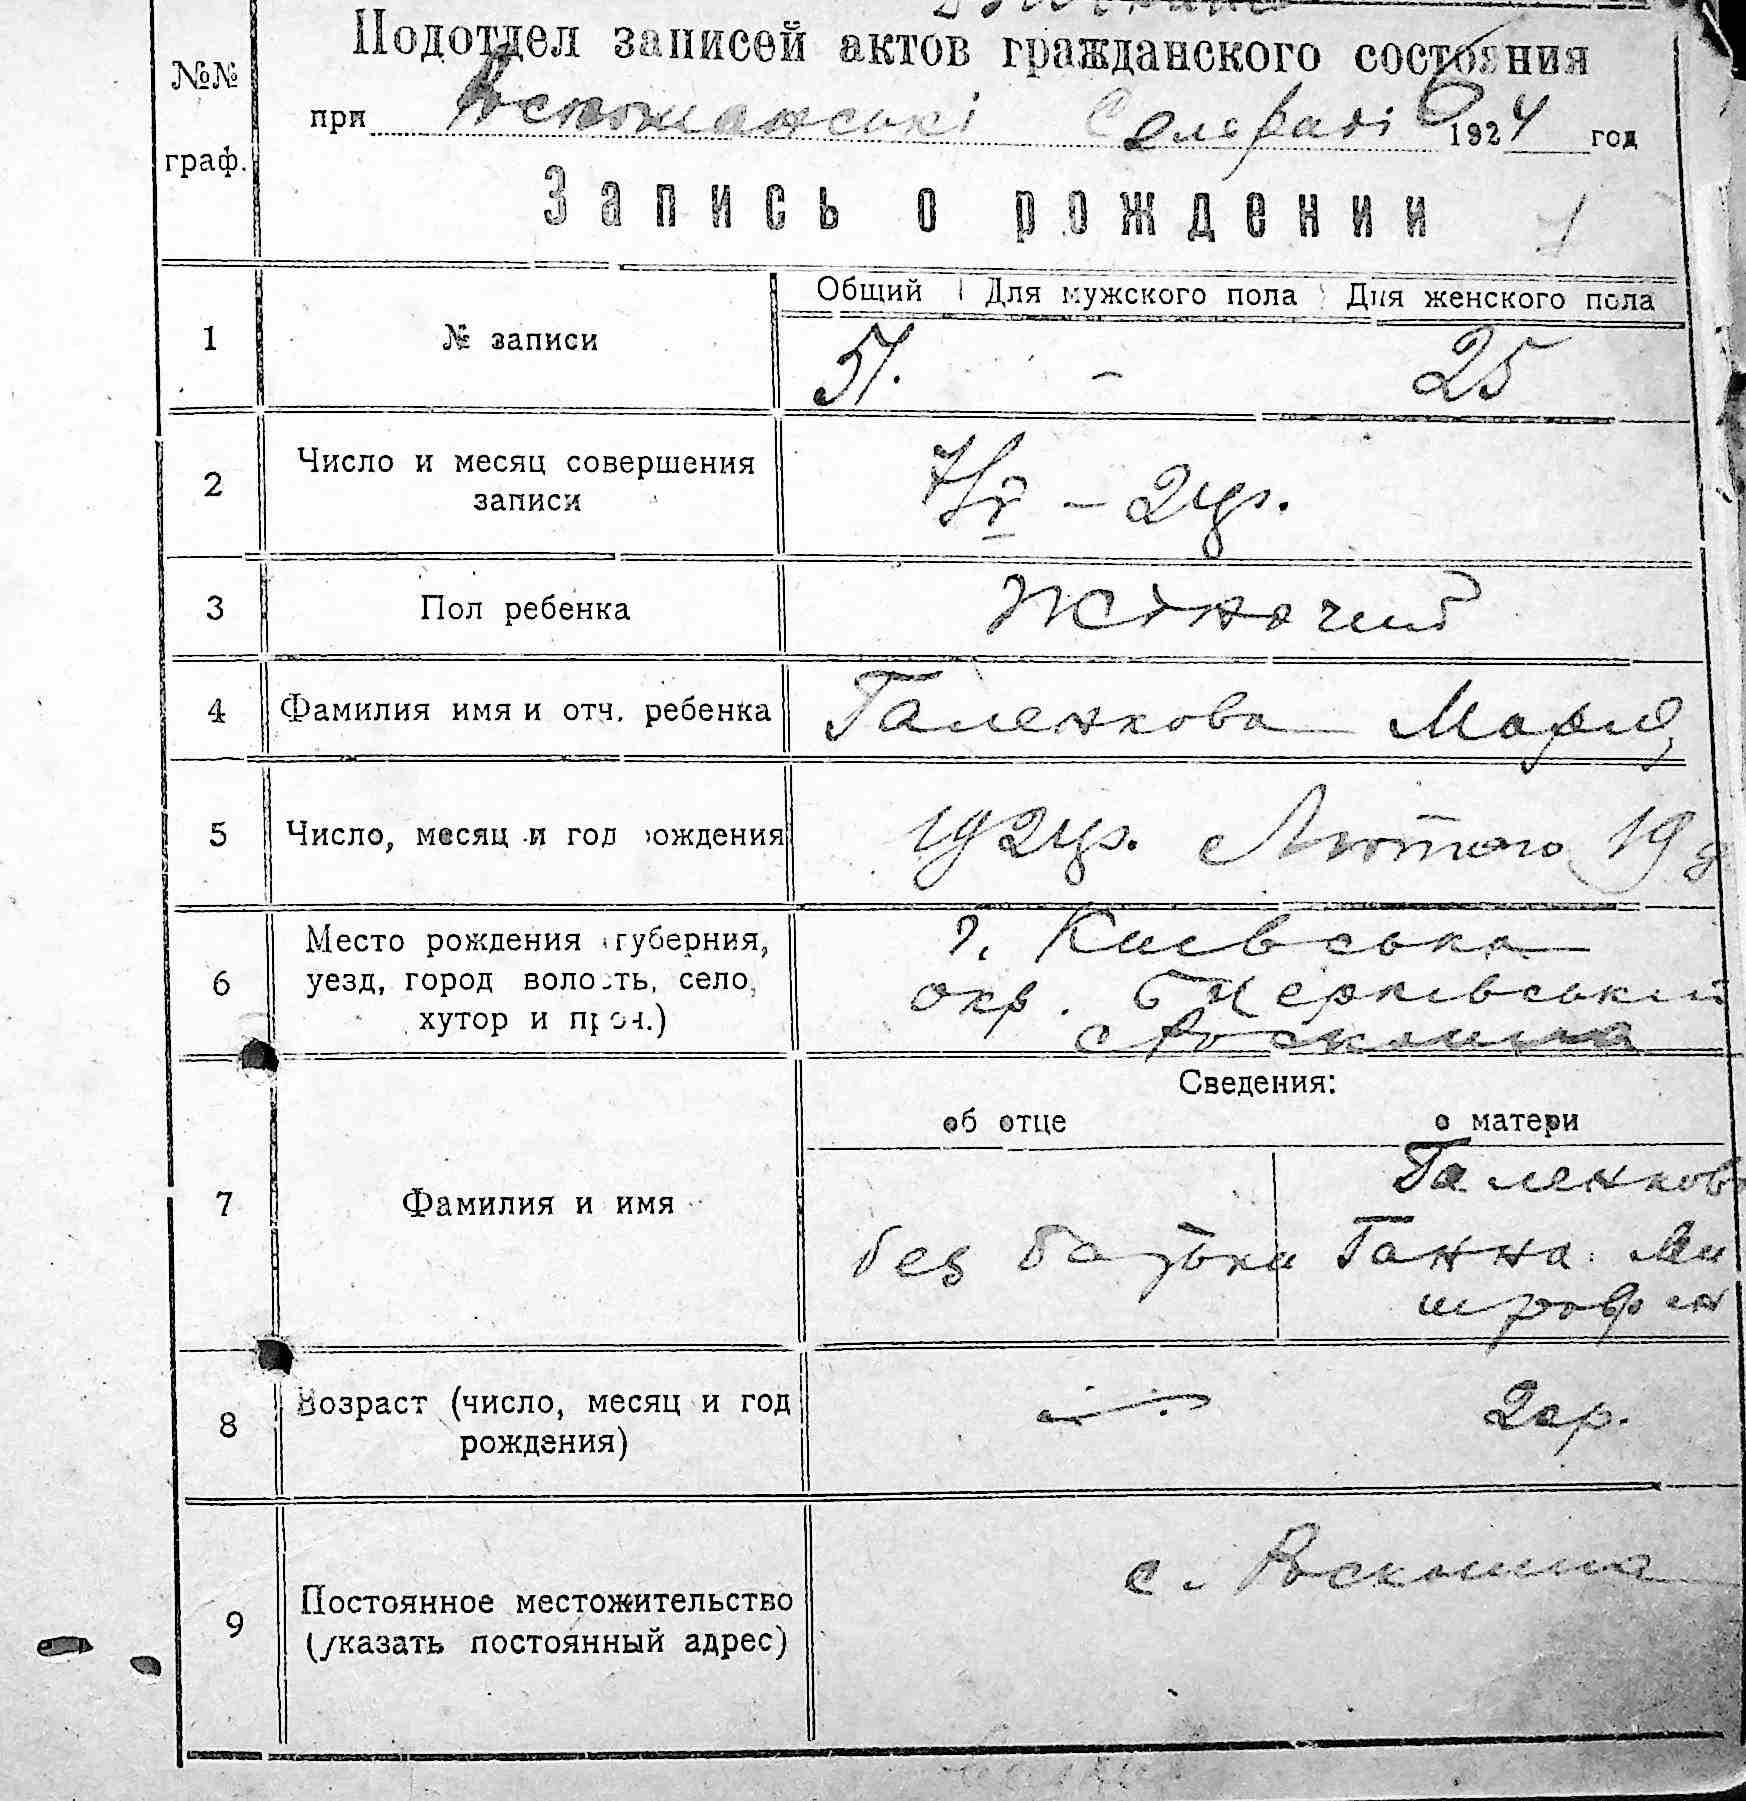 Подотдел записей актов гражданского состояния
№№
граф.
при Сельраді 1924 год
Запись о рождении
1
Общий Для мужского пола Для женского пола
1 № записи 51. - 25
2 Число и месяц совершения записи 7/V - 24р.
3 Пол ребенка Жіночий
4 Фамилия имя и отч. ребенка Галенкова Марія
5 Число, месяц и год рождения 1924р. Лютого 19 д
6 Место рождения (губерния, г. Київська
уезд, город волость, село, окр. Б Церківський
хутор и проч.) с Роскошна
Сведения:
об отце о матери
7 Фамилия и имя
Галенкова
без батьки Ганна Ми
трофан
8 Возраст (число, месяц и год рождения) 20р.
9 Постоянное местожительство с. Роскошна
(указать постоянный адрес)